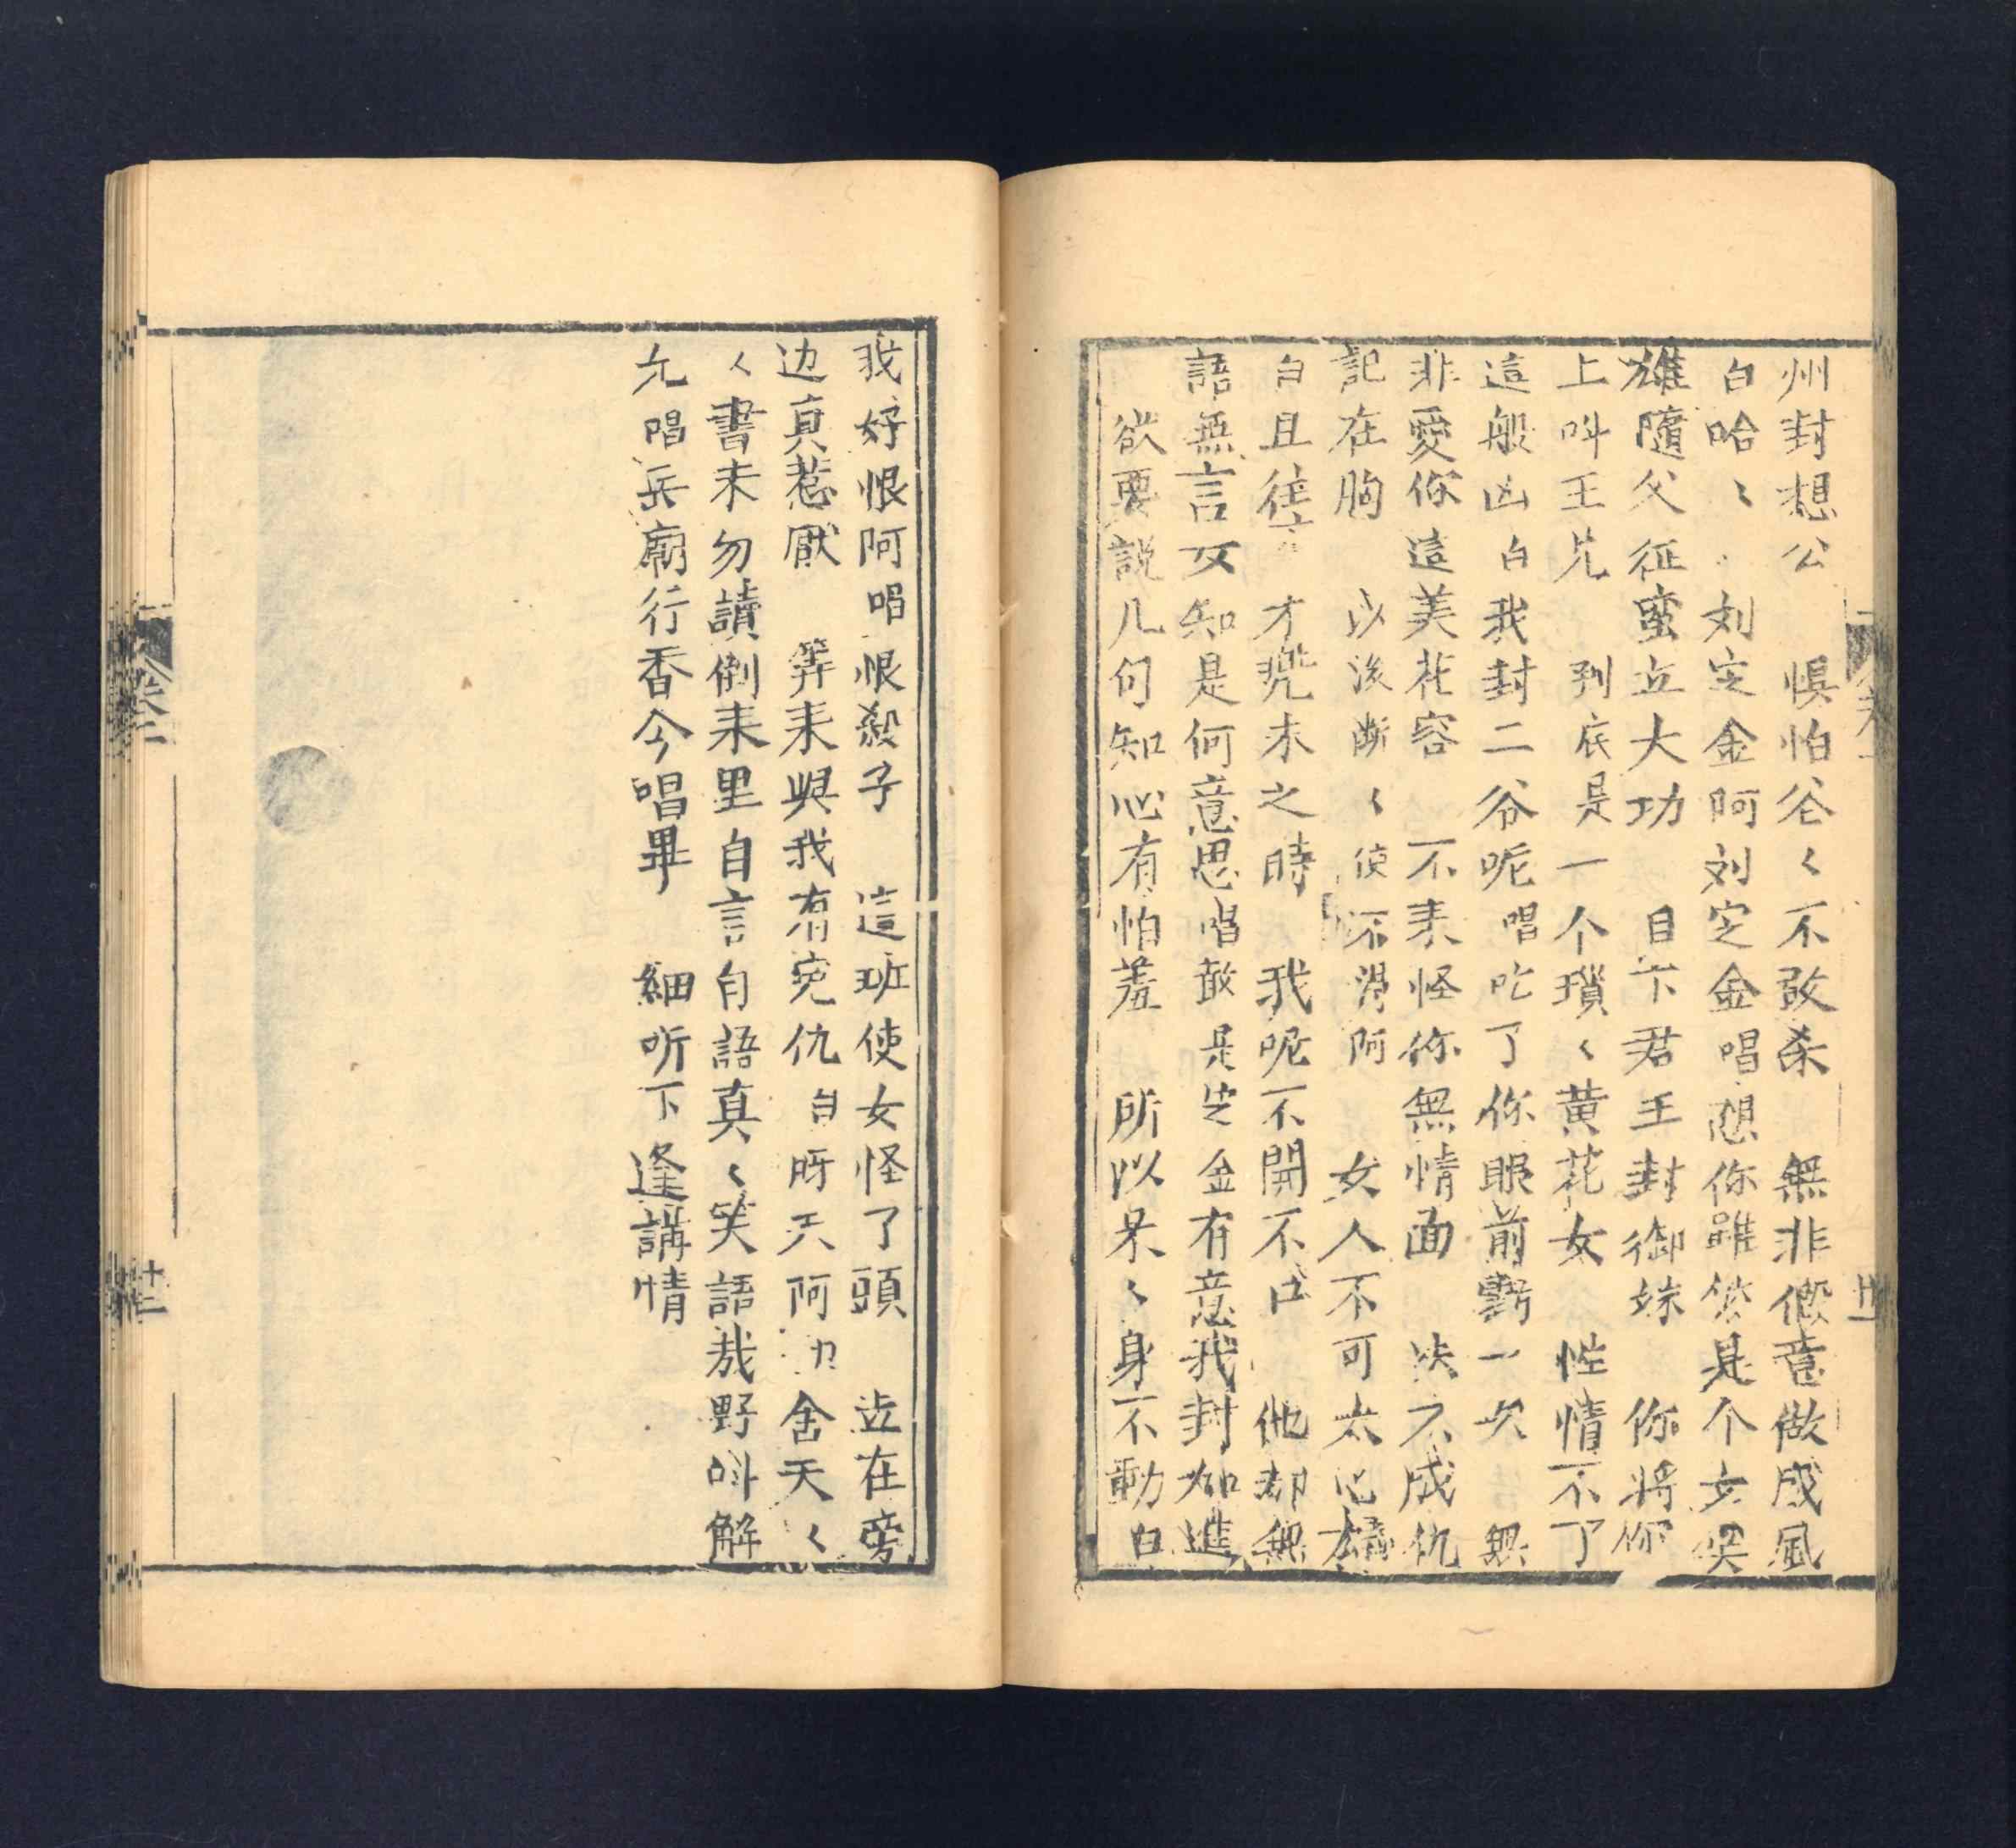 州封想公　惧怕爷〱不敢杀　無非假意做成風
白哈〻　刘定金阿刘定金唱想你雖然是个女英
雄隨父征蛮立大功　自下君王封御妹　你將你
上呌王兄　到底是一个瑣〱黄花女　性情不了
這般凶白我封二爷呢唱吃了你眼前虧一次　無
非愛你這美花容　不来怪你無情面　决不成仇
記在胸　以後断〱使不得阿　女人不可太心雄
白且住　才兠未之時　我呢不開不口　他却無
語無言女知是何意思唱敢是定金有意我封加進
欲要説几句知心有怕羞　所以呆〻身不動白
我好恨阿唱恨殺子　這班使女怪了頭　立在旁
边真惹厭　筭来與我有寃仇白呀天阿　舍天〱
〱書未勿讀倒来里自言自語真〱笑語哉野呌解
九唱兵廟行香今唱畢　細听下逢講情
卷二
十二